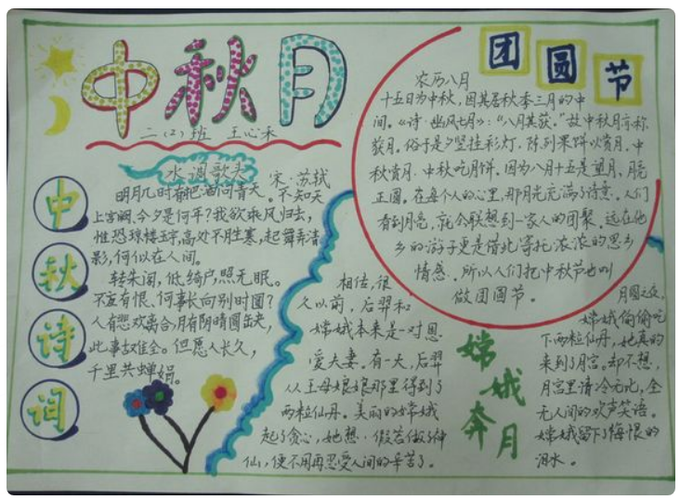 中秋月
二(2)班 王心禾
中秋诗词
水调歌头
宋·苏轼
明月几时有把酒问青天。不知天
上宫阙,今夕是何年?我欲乘风归去,
惟恐琼楼玉宇,高处不胜寒,起舞弄清
影,何似在人间。
转朱阁,低绮户,照无眠。
不宜有恨、何事长向别时圆?
人有悲欢离合,月有阴晴圆缺,
此事古难全。但愿人长久,
千里共蝉娟。
团圆节
农历八月
十五日为中秋,因其居秋季三月的中
间。《诗·豳风七月》:“八月其获。”故中秋月亦称
获月。俗于是夕竖挂彩灯,陈列果饼以赏月,中
秋赏月、中秋吃月饼。因为八月十五是望月,月亮
正圆。在每个人的心里,那月光充满了诗意。人们
看到月亮,就会联想到一家人的团聚。远在他
乡的游子更是借此寄托浓浓的思乡
情感。所以人们把中秋节也叫
做团圆节。
嫦娥奔月
相传,很
久以前,后羿和
嫦娥本来是一对恩
爱夫妻。有一天,后羿
从王母娘娘那里得到了
两粒仙丹。美丽的嫦娥
起了贪心,她想,假若做了神
仙,便不用再忍受人间的辛苦了。
月圆之夜,
嫦娥偷偷吃
下两粒仙丹,她真的
来到了月宫。却不想,
月宫里清冷无比,全
无人间的欢声笑语。
嫦娥留下了悔恨的
泪水。